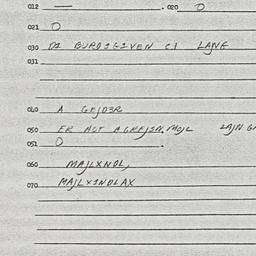 012 — . 020 O
021 O
030 DI BURDIGIVEN CI LAJNF
031
040 A GEJD3R
050 ER NOT AGREJSN. MOJL LAJN GA
051 O .
060 MAJLXNDL,
070 MAJLXINDLAX